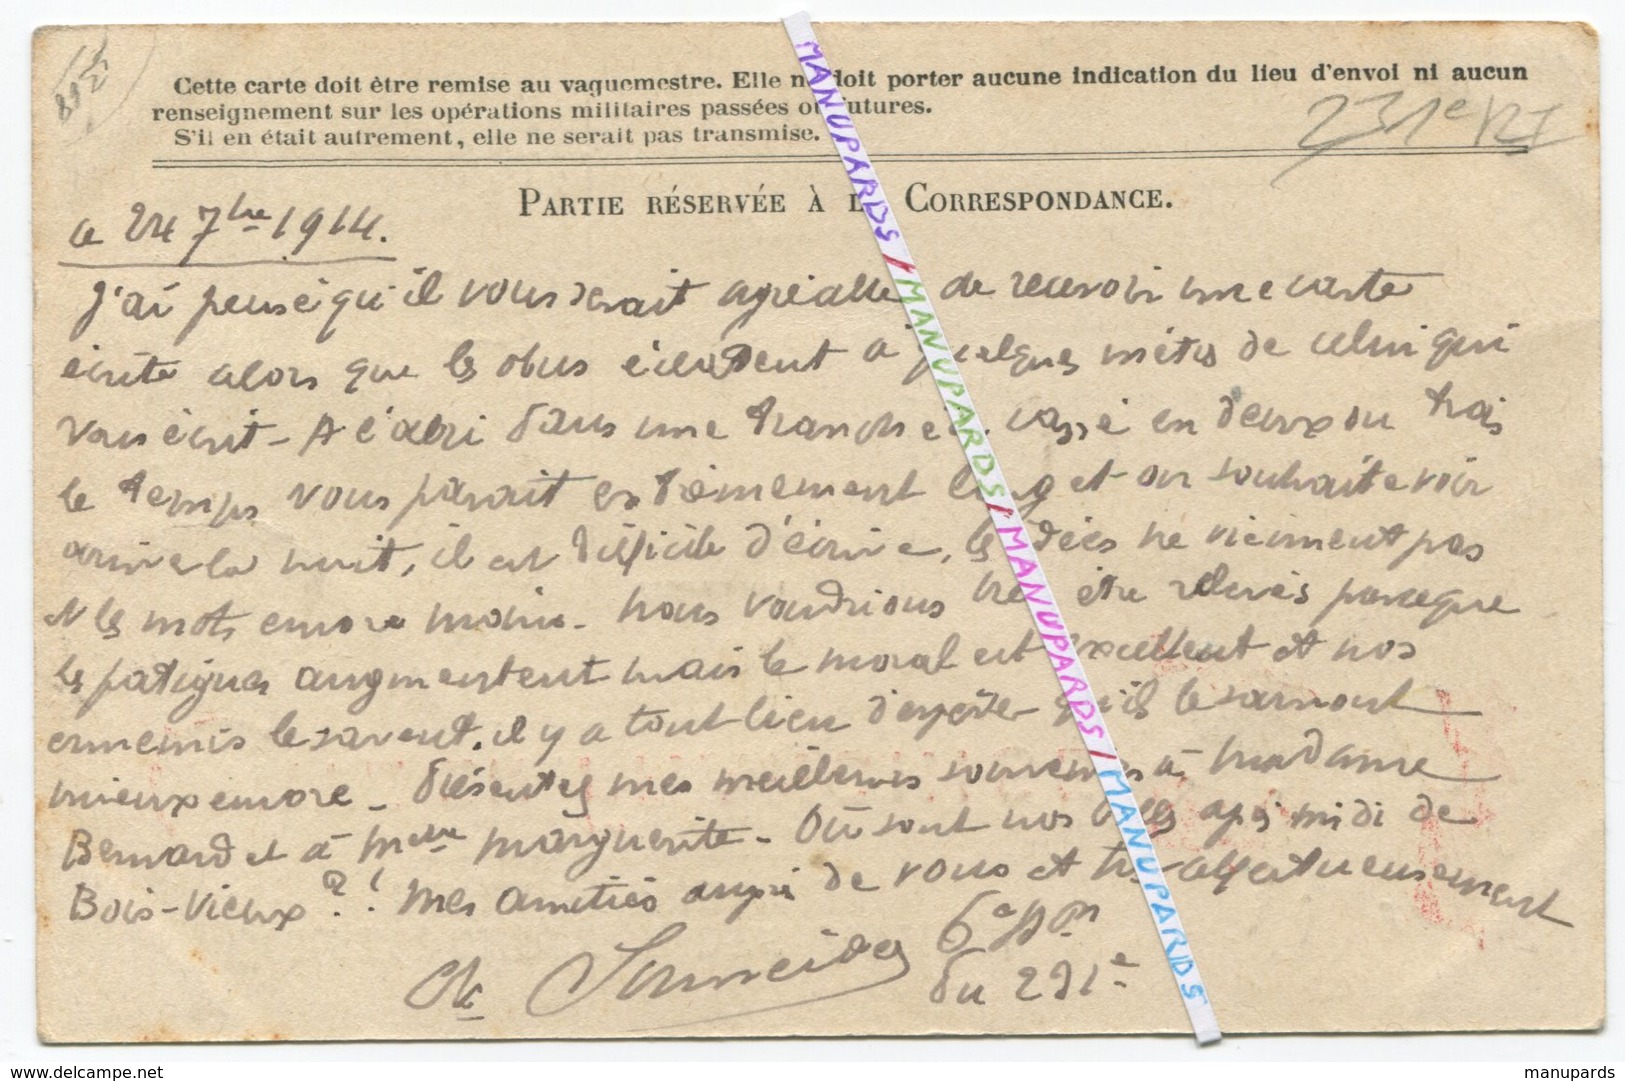 Cette carte doit être remise au vaguemestre. Elle ne doit porter aucune indication du lieu d'envoi ni aucun
renseignement sur les opérations militaires passées ou futures.
S'il en était autrement, elle ne serait pas transmise.
231e RI
PARTIE RÉSERVÉE À LA CORRESPONDANCE.
le 24 7bre 1914.
J'ai pensé qu'il vous serait agréable de recevoir une carte
écrite alors que les obus éclatent à quelques mètres de celui qui
vous écrit - A l'abri dans une tranchée. cassé en deux ou trois
le temps vous parait extrèmement long et on souhaite voir
arriver la nuit, il est difficile d'écrire, les idées ne viennent pas
et les mots encore moins - nous voudrions être relevés parceque
les fatigues augmentent mais le moral est excellent et nos
ennemis le savent. il y a tout lieu d'espérer qu'ils le sauront
mieux encore - Présentez mes meilleurs souvenirs à Madame
Bernard et à Melle Marguerite - Où sont nos belles après midi de
Bois-Vieux ? ! Mes amitiés auprès de vous et très affectueusement
Ch Schneider 6e Bon
du 231e
MANUPARDS / MANUPARDS / MANUPARDS / MANUPARDS
www.delcampe.net
manupards